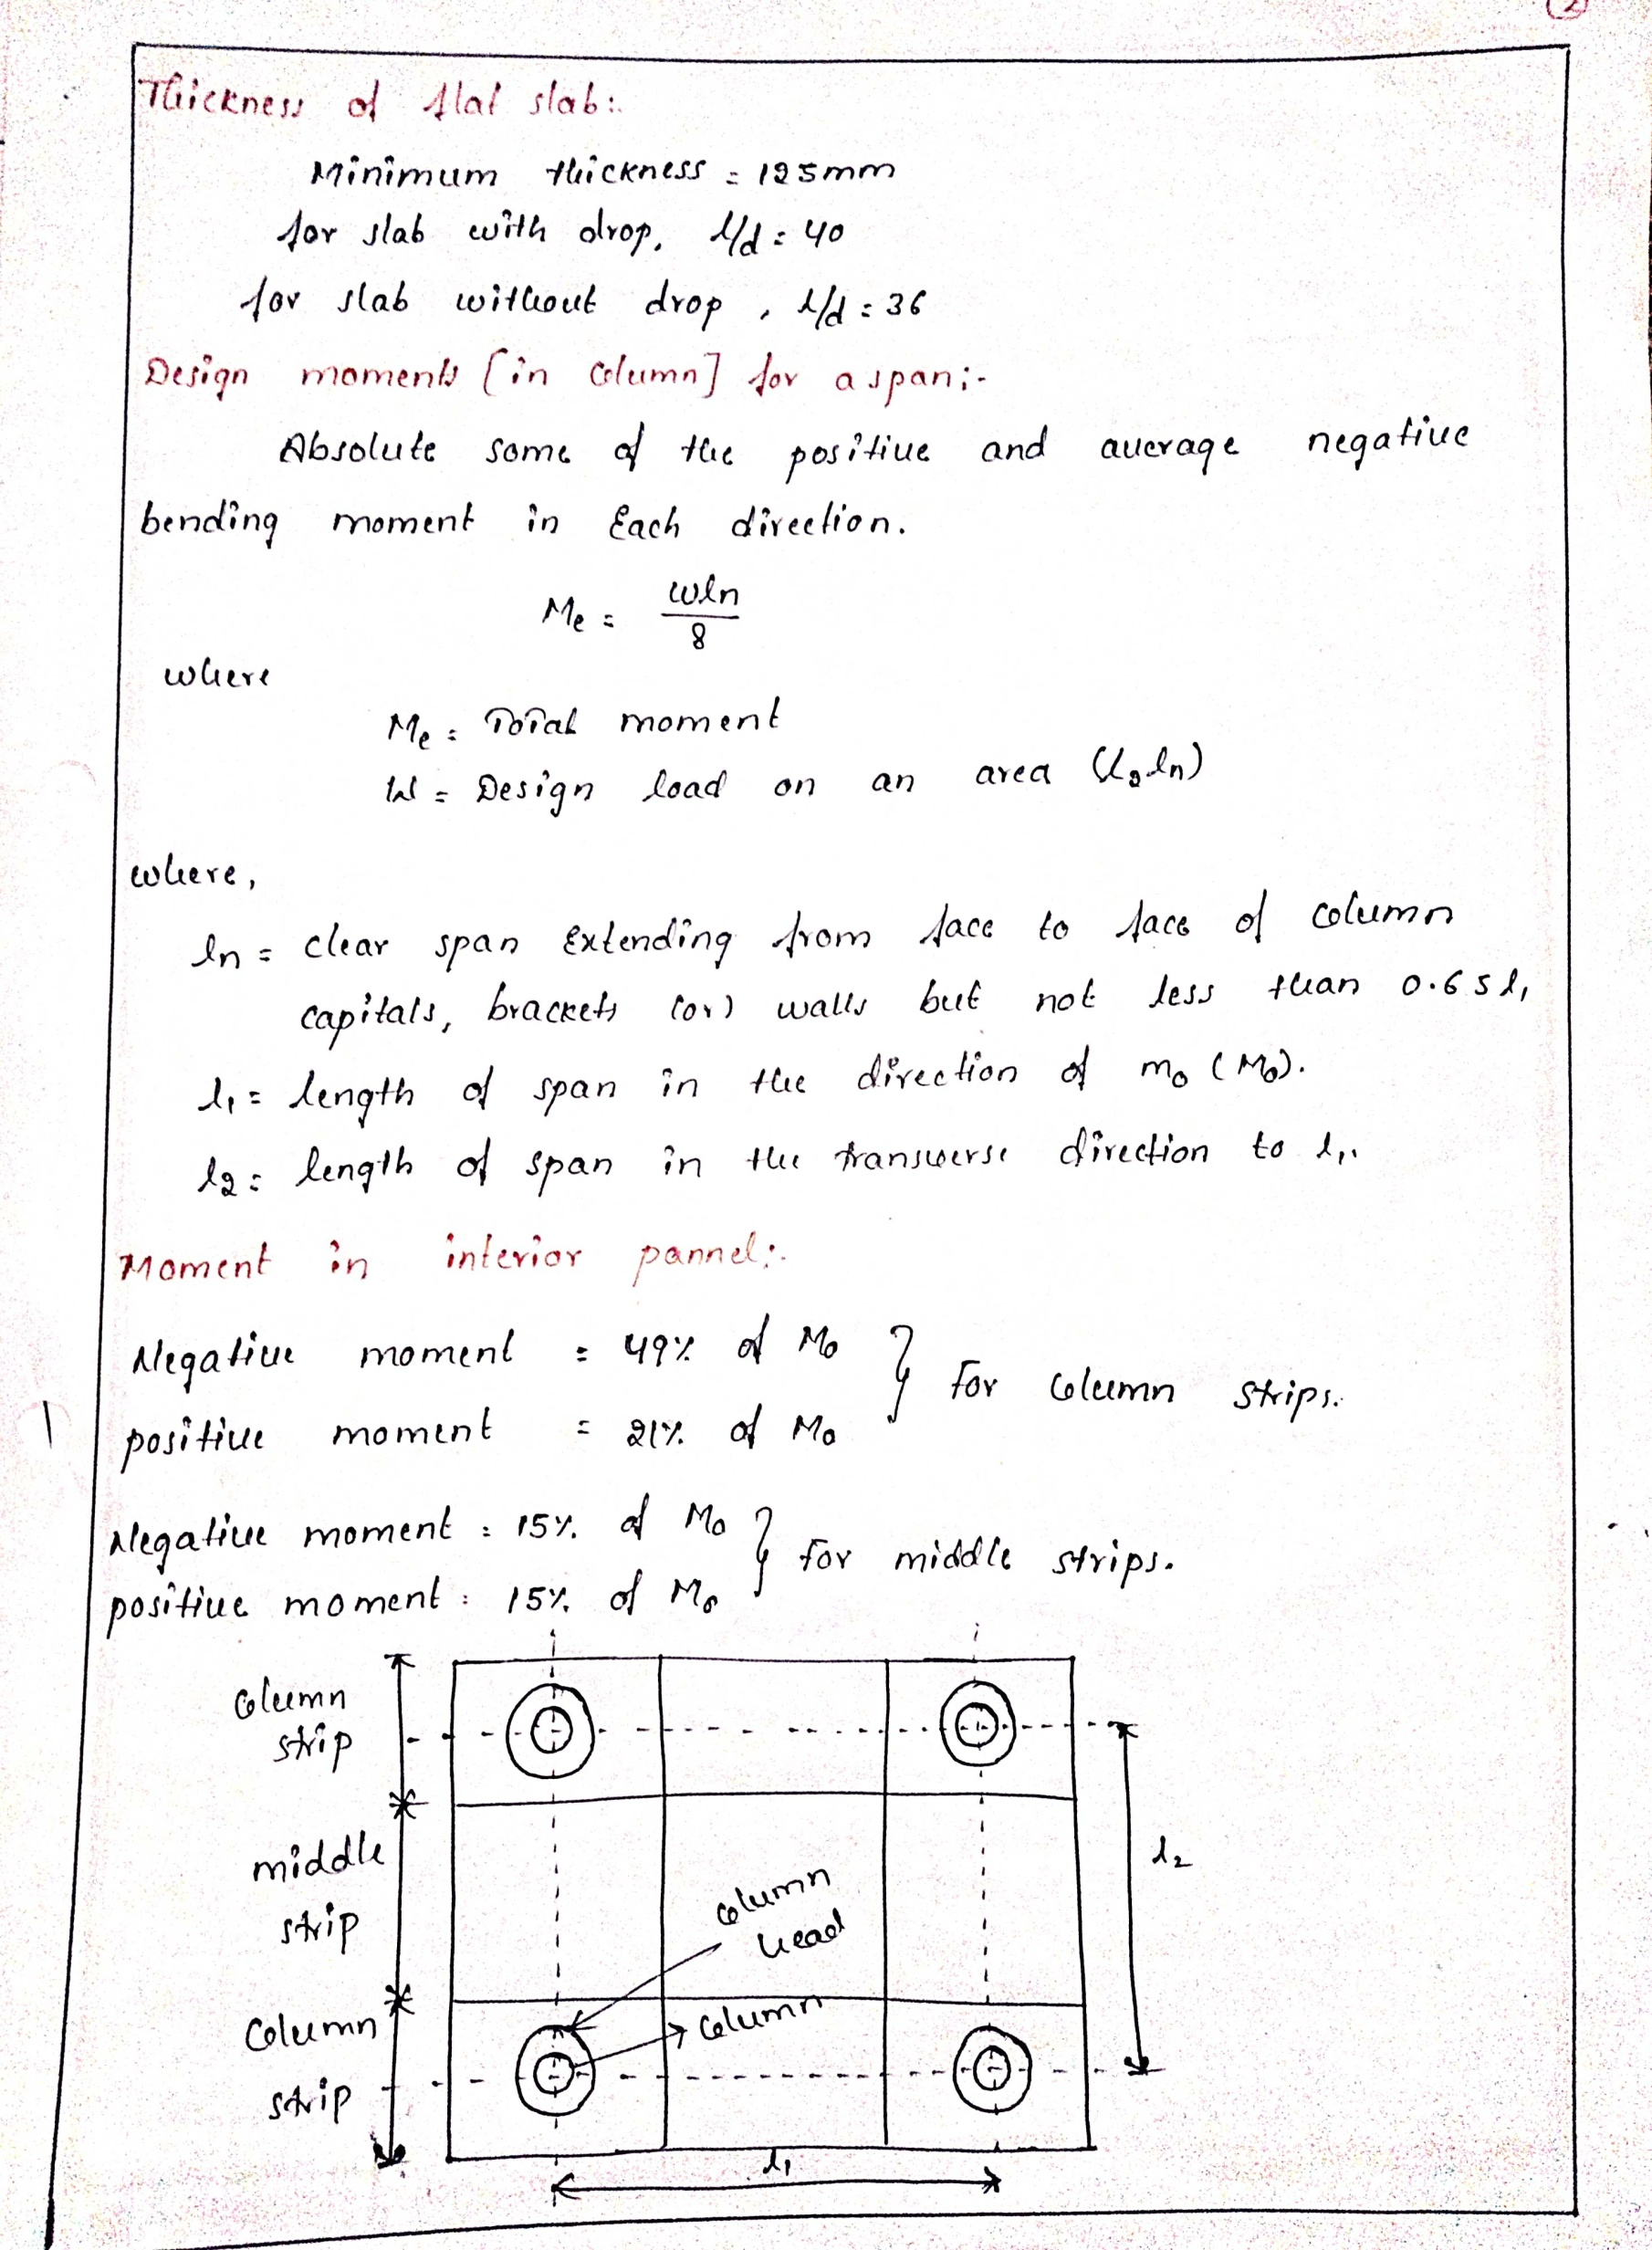 2
Thickness of flat slab:.
Minimum thickness = 125mm
for slab with drop, l/d = 40
for slab without drop, l/d = 36
Design moments [in column] for a span:-
Absolute some of the positive and average negative
bending moment in Each direction.
Me = wln/8
where
Me = Total moment
W = Design load on an area (l2ln)
where,
ln = clear span Extending from face to face of column
capitals, brackets (or) walls but not less than 0.65l1
l1 = length of span in the direction of mo (Mo).
l2 = length of span in the transverse direction to l1.
Moment in interior pannel:.
Negative moment = 49% of Mo } For column strips.
positive moment = 21% of Mo
Negative moment = 15% of Mo } For middle strips.
positive moment = 15% of Mo
column
strip
middle
strip
column
head
column
column
strip
l2
l1